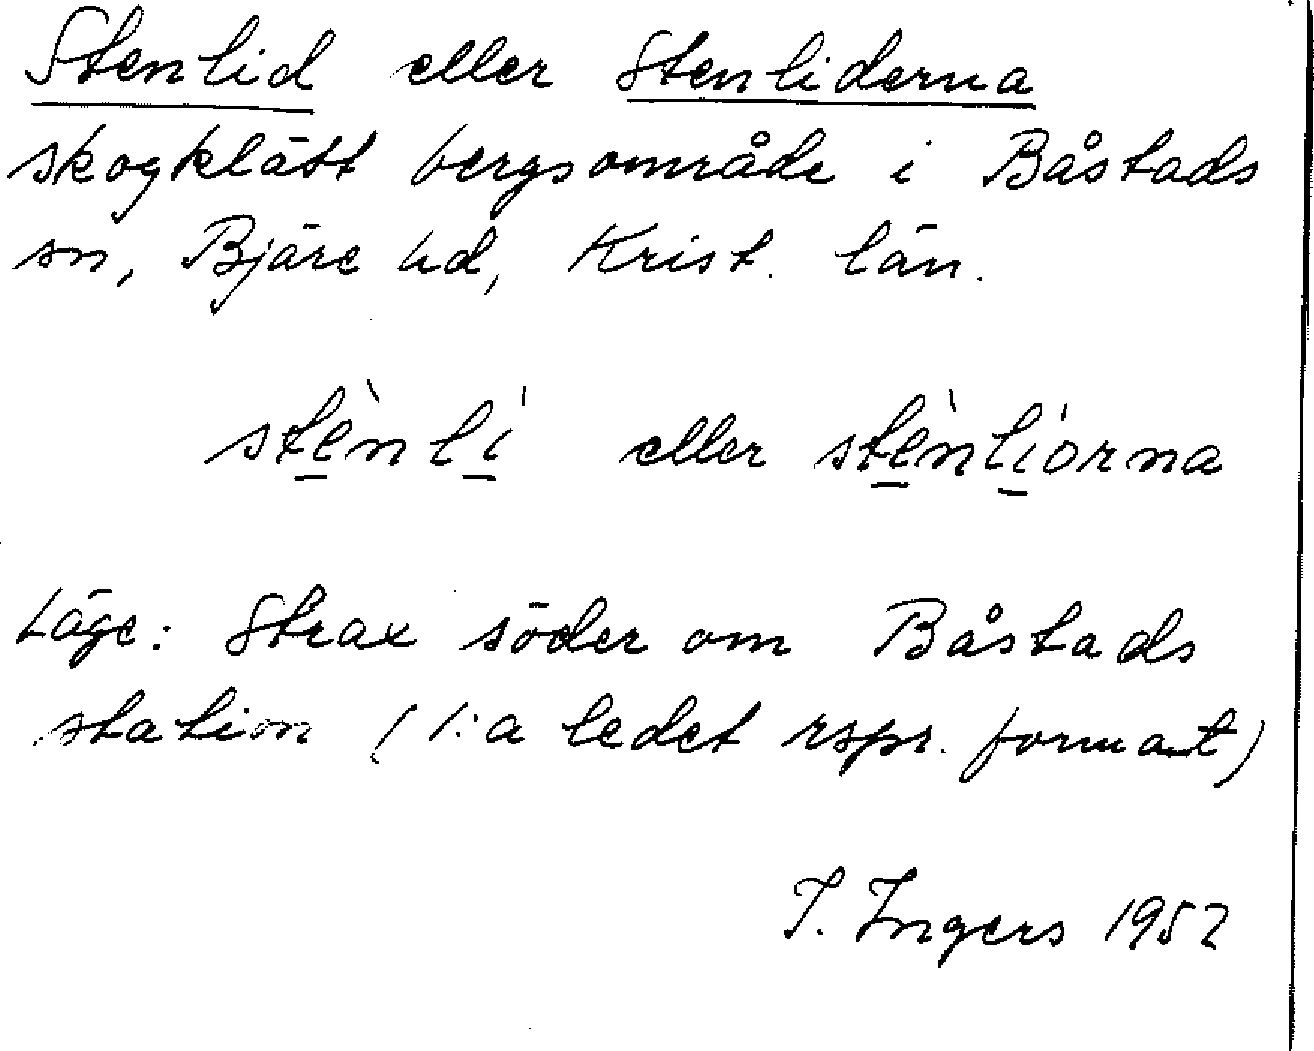 Stenlid eller Stenliderna
skogklätt bergsområde i Båstads
sn, Bjäre hd, Krist. län.
stènlí eller stènlíorna
Läge: Strax söder om Båstads
station (1:a ledet rspr. format)
I. Ingers 1952